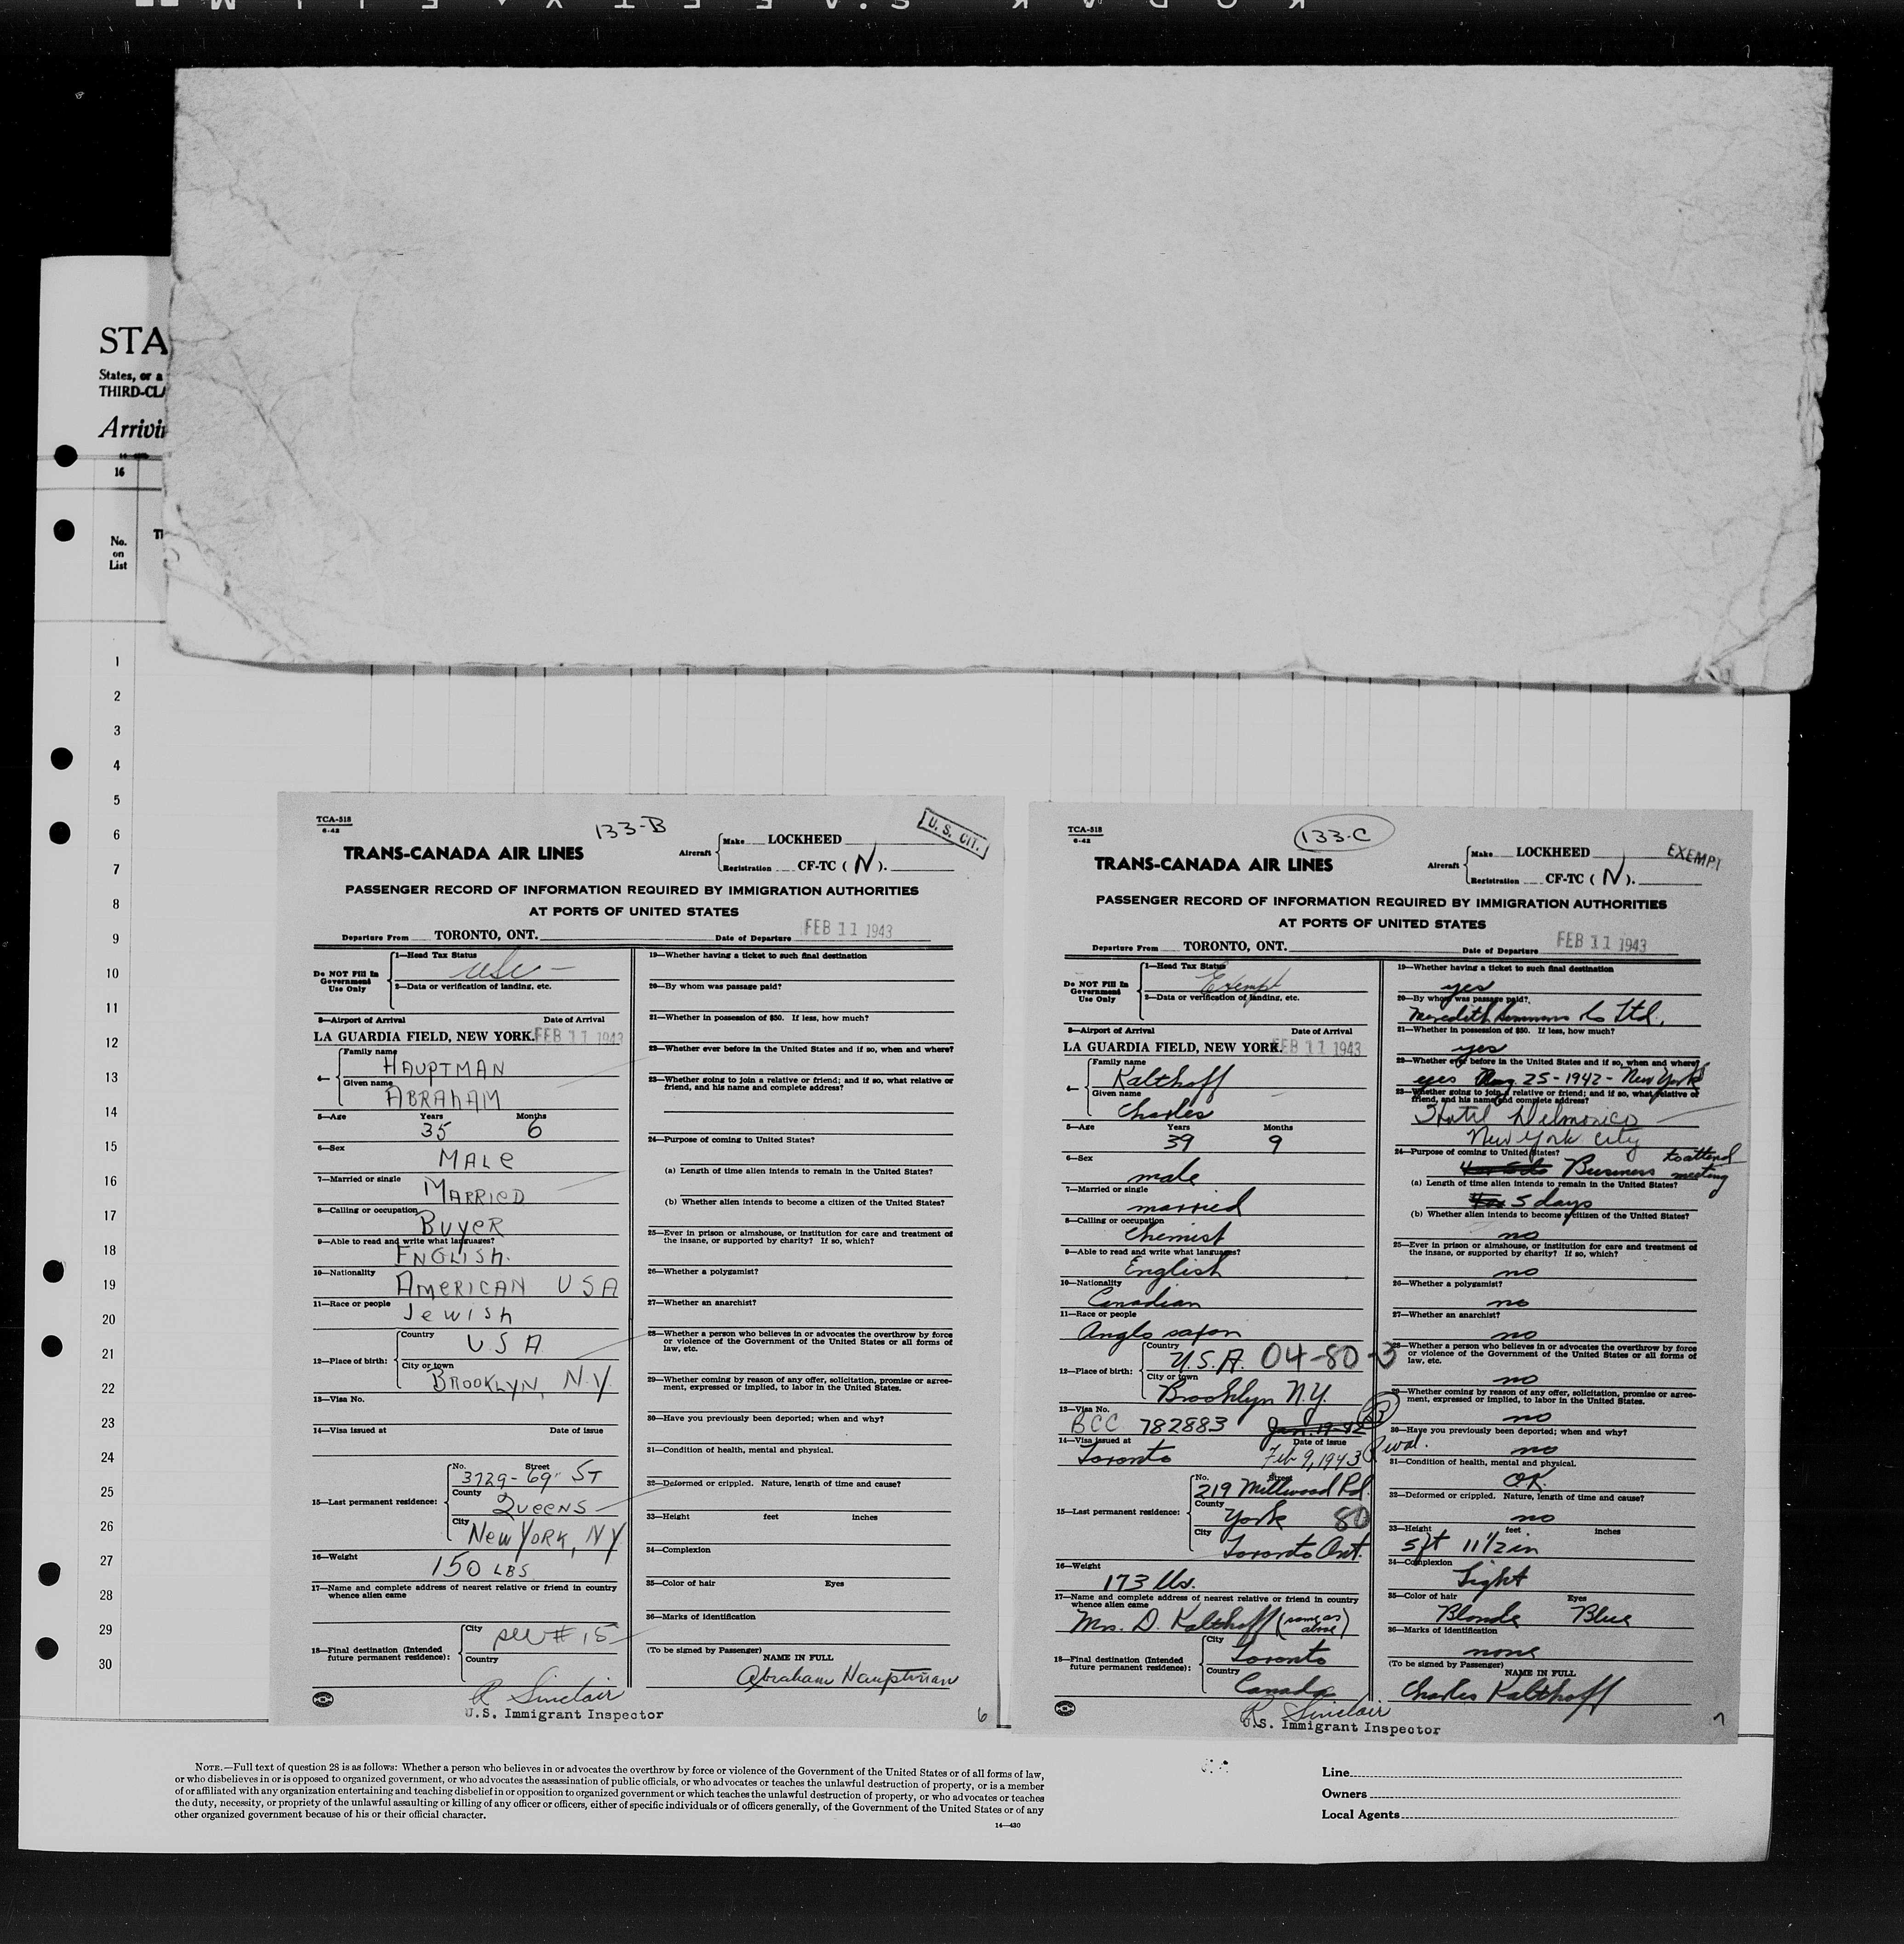 KODAK SAFETY FILM
STA
States, or a
THIRD-CLA
Arrivin
16
No.
on
List
1
2
3
4
5
6
7
8
9
10
11
12
13
14
15
16
17
18
19
20
21
22
23
24
25
26
27
28
29
30
TCA-518
6-42
133-B
U. S. CIT.
TRANS-CANADA AIR LINES
Aircraft
Make LOCKHEED
Registration CF-TC ( N ).
PASSENGER RECORD OF INFORMATION REQUIRED BY IMMIGRATION AUTHORITIES
AT PORTS OF UNITED STATES
Departure From TORONTO, ONT. Date of Departure FEB 11 1943
Do NOT Fill In
Government
Use Only
1—Head Tax Status
usc -
2—Data or verification of landing, etc.
3—Airport of Arrival Date of Arrival
LA GUARDIA FIELD, NEW YORK. FEB 11 1943
4— Family name
HAUPTMAN
Given name
ABRAHAM
5—Age Years Months
35 6
6—Sex
MALE
7—Married or single
MARRIED
8—Calling or occupation
BUYER
9—Able to read and write what languages?
ENGLISH.
10—Nationality
AMERICAN USA
11—Race or people
Jewish
12—Place of birth:
Country
U.S.A.
City or town
BROOKLYN, N.Y.
13—Visa No.
14—Visa issued at Date of issue
15—Last permanent residence:
No. Street
3729 - 69" ST
County
QUEENS
City
New YORK, NY
16—Weight
150 LBS
17—Name and complete address of nearest relative or friend in country
whence alien came
18—Final destination (Intended
future permanent residence):
City
see # 15
Country
R Sinclair
U.S. Immigrant Inspector
19—Whether having a ticket to such final destination
20—By whom was passage paid?
21—Whether in possession of $50. If less, how much?
22—Whether ever before in the United States and if so, when and where?
23—Whether going to join a relative or friend; and if so, what relative or
friend, and his name and complete address?
24—Purpose of coming to United States?
(a) Length of time alien intends to remain in the United States?
(b) Whether alien intends to become a citizen of the United States?
25—Ever in prison or almshouse, or institution for care and treatment of
the insane, or supported by charity? If so, which?
26—Whether a polygamist?
27—Whether an anarchist?
28—Whether a person who believes in or advocates the overthrow by force
or violence of the Government of the United States or all forms of
law, etc.
29—Whether coming by reason of any offer, solicitation, promise or agree-
ment, expressed or implied, to labor in the United States.
30—Have you previously been deported; when and why?
31—Condition of health, mental and physical.
32—Deformed or crippled. Nature, length of time and cause?
33—Height feet inches
34—Complexion
35—Color of hair Eyes
36—Marks of identification
(To be signed by Passenger)
NAME IN FULL
Abraham Hauptman
6
TCA-518
6-42
133-C
EXEMPT
TRANS-CANADA AIR LINES
Aircraft
Make LOCKHEED
Registration CF-TC ( N ).
PASSENGER RECORD OF INFORMATION REQUIRED BY IMMIGRATION AUTHORITIES
AT PORTS OF UNITED STATES
Departure From TORONTO, ONT. Date of Departure FEB 11 1943
Do NOT Fill In
Government
Use Only
1—Head Tax Status
Exempt
2—Data or verification of landing, etc.
3—Airport of Arrival Date of Arrival
LA GUARDIA FIELD, NEW YORK. FEB 11 1943
4— Family name
Kalthoff
Given name
Charles
5—Age Years Months
39 9
6—Sex
male
7—Married or single
married
8—Calling or occupation
Chemist
9—Able to read and write what languages?
English
10—Nationality
Canadian
11—Race or people
Anglo saxon
12—Place of birth:
Country
U.S.A. 04-80-3
City or town
Brooklyn N.Y.
13—Visa No.
BCC 782883 Jan. 19-42
14—Visa issued at Date of issue
Toronto Feb 9, 1943
15—Last permanent residence:
No. Street
219 Millwood Rd.
County
York 80
City
Toronto Ont.
16—Weight
173 lbs.
17—Name and complete address of nearest relative or friend in country
whence alien came
Mrs. D. Kalthoff (same as above)
18—Final destination (Intended
future permanent residence):
City
Toronto
Country
Canada
R. Sinclair
U.S. Immigrant Inspector
19—Whether having a ticket to such final destination
yes
20—By whom was passage paid?
Meredith Simmons Co Ltd.
21—Whether in possession of $50. If less, how much?
yes
22—Whether ever before in the United States and if so, when and where?
yes Aug. 25-1942 - New York
23—Whether going to join a relative or friend; and if so, what relative or
friend, and his name and complete address?
Hotel Delmonico
New York City
24—Purpose of coming to United States?
Business to attend
meeting
(a) Length of time alien intends to remain in the United States?
5 days
(b) Whether alien intends to become a citizen of the United States?
no
25—Ever in prison or almshouse, or institution for care and treatment of
the insane, or supported by charity? If so, which?
no
26—Whether a polygamist?
no
27—Whether an anarchist?
no
28—Whether a person who believes in or advocates the overthrow by force
or violence of the Government of the United States or all forms of
law, etc.
no
29—Whether coming by reason of any offer, solicitation, promise or agree-
ment, expressed or implied, to labor in the United States.
no
30—Have you previously been deported; when and why?
no
31—Condition of health, mental and physical.
O.K.
32—Deformed or crippled. Nature, length of time and cause?
no
33—Height feet inches
5 ft 11 1/2 in
34—Complexion
Light
35—Color of hair Eyes
Blonde Blue
36—Marks of identification
none
(To be signed by Passenger)
NAME IN FULL
Charles Kalthoff
7
NOTE.—Full text of question 28 is as follows: Whether a person who believes in or advocates the overthrow by force or violence of the Government of the United States or of all forms of law,
or who disbelieves in or is opposed to organized government, or who advocates the assassination of public officials, or who advocates or teaches the unlawful destruction of property, or is a member
of or affiliated with any organization entertaining and teaching disbelief in or opposition to organized government or which teaches the unlawful destruction of property, or who advocates or teaches
the duty, necessity, or propriety of the unlawful assaulting or killing of any officer or officers, either of specific individuals or of officers generally, of the Government of the United States or of any
other organized government because of his or their official character.
14—430
Line
Owners
Local Agents